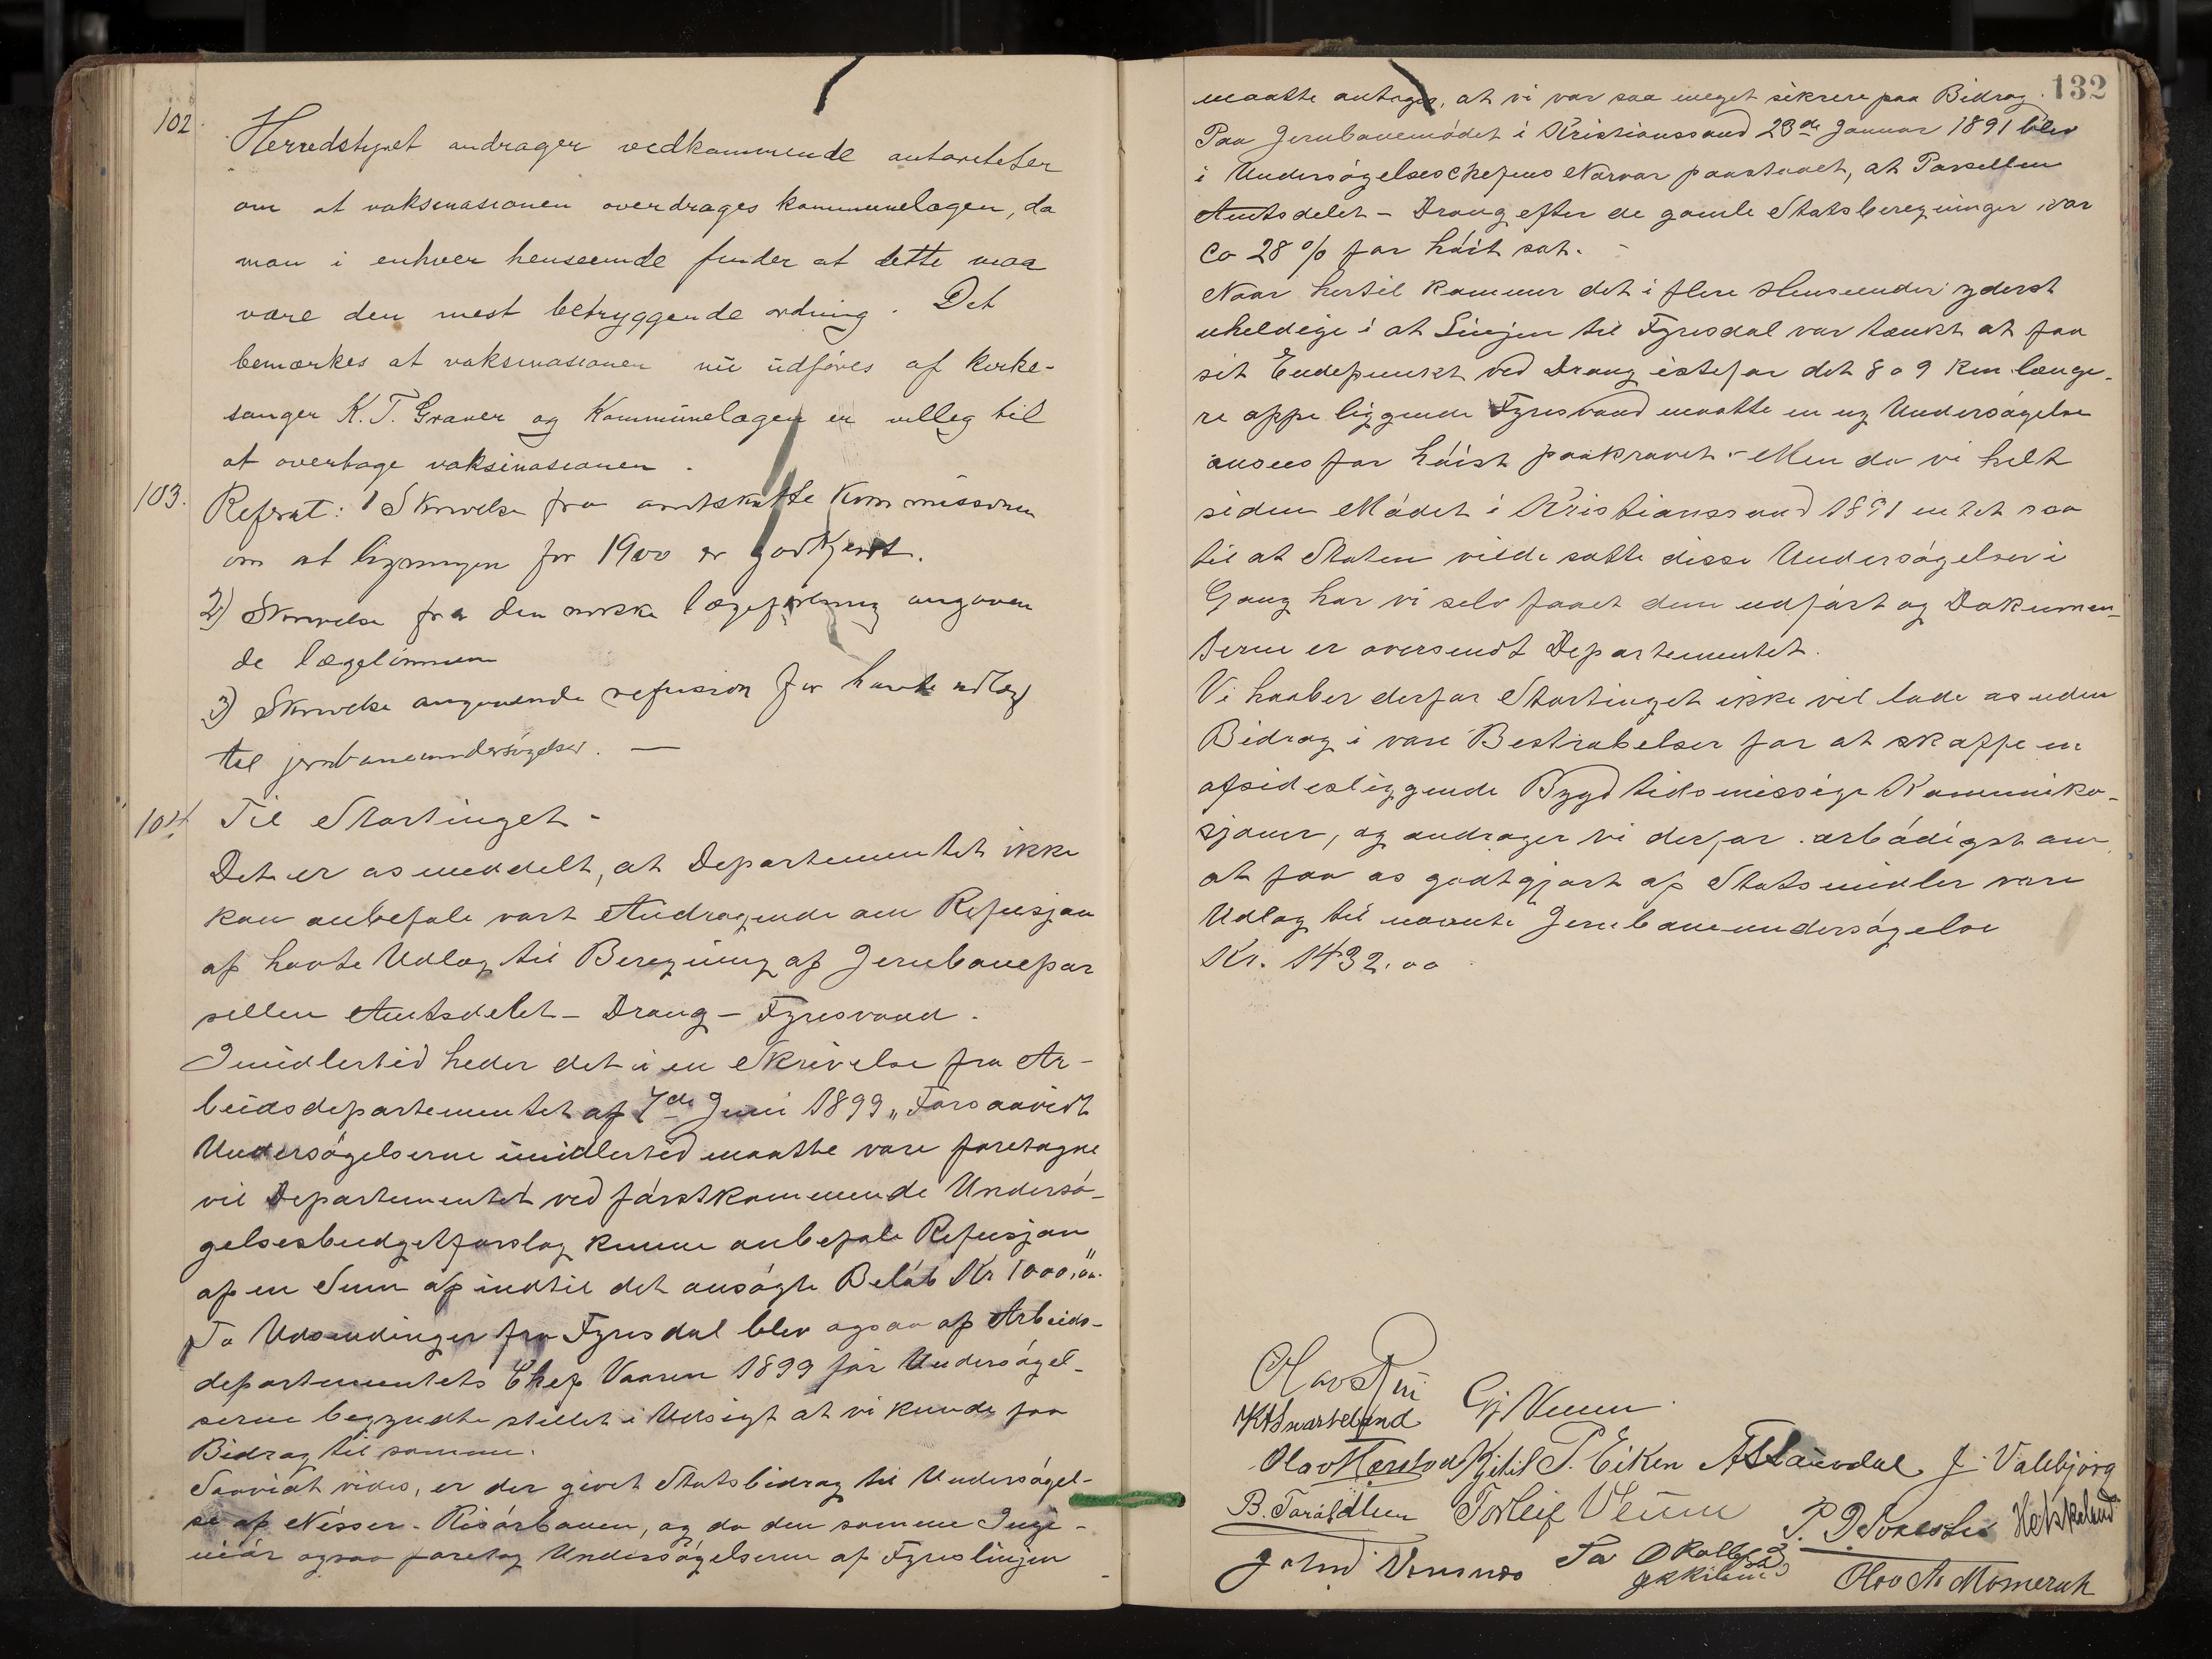 102.
Herredstyret andrager vedkommende autoriteter
om at vaksinasionen overdrages kommunelægen, da
man i enhver henseende finder at dette maa
være den mest betryggende ordning. Det
bemærkes at vaksinasionen nu udføres af kirke-
sanger K. T. Graver og Kommunelægen er velleg til
at overtage vaksinasionen.
103. Referat: 1 Skrivelse fra amtskatte Kommissionen
om at ligningen for 1900 er godkjent.
2) Skrivelse fra den norske lægeforening angaaen
de lægelønnen
3) Skrivelse angaaende refusion for havte udlæg
til jernbaneundersøgelser. —
104. Til Stortinget.
Det er os meddelt, at Departementet ikke
kan anbefale vort Andragende om Refusjon
af havte Udlæg til Beregning af Jernbanepar
sellen Amtsdelet – Drang – Fyresvand.
Imidlertid heder det i en Skrivelse fra Ar-
beidsdepartementet af 7de Juni 1899 „Forsaavidt
Undersøgelserne imidlertid maatte være foretagne
vil Departementet ved førstkommende Undersø-
gelsesbudgetforslag kunne anbefale Refusjon
af en Sum af indtil det ansøgte Beløb Kr 1000,00."
To Udsendinger fra Fyresdal blev ogsaa af Arbeids-
departementets Chef Vaaren 1899 før Undersøgel-
serne begyndte stillet i Udsigt at vi kunde faa
Bidrag til samme.
Saavidt vides, er der givet Statsbidrag til Undersøgel-
se af Nisser-Risørbanen, og da den samme Inge-
niør ogsaa foretog Undersøgelserne af Fyreslinjen
132
maatte antages, at vi var saa meget sikrere paa Bidrag.
Paa Jernbanemødet i Kristianssand 23de Januar 1891 blev
i Undersøgelseschefens Nærvær paastaaet, at Parsellen
Amtsdelet – Drang efter de gamle Statsberegninger var
Ca 28 % for høit sat. –
Naar hertil kommer det i flere Henseender yderst
uheldige i at Linjen til Fyresdal var tænkt at faa
sit Endepunkt ved Drang istefor det 8 a 9 km. længe-
re oppe liggende Fyresvand maatte en ny Undersøgelse
ansees for høist paakrævet. – Men da vi helt
siden Mødet i Kristianssand 1891 intet saa
til at Staten vilde sætte disse Undersøgelser i
Gang har vi selv faaet dem udført og Dokumen-
terne er oversendt Departementet.
Vi haaber derfor Stortinget ikke vil lade os uden
Bidrag i vore Bestræbelser for at skaffe en
afsidesliggende Bygd tidsmæssige Kommunika-
sjoner, og andrager vi derfor ærbødigst om
at faa os godtgjort af Statsmidler vore
Udlæg til nævnte Jernbaneundersøgelse
Kr. 1432.00
Olav
Gj Veum
Olav Kjetil T. Eiken J. Valebjørg
B. Taraldlien Torleif Veum
John Vensnes Ta
Olav A. Momrak